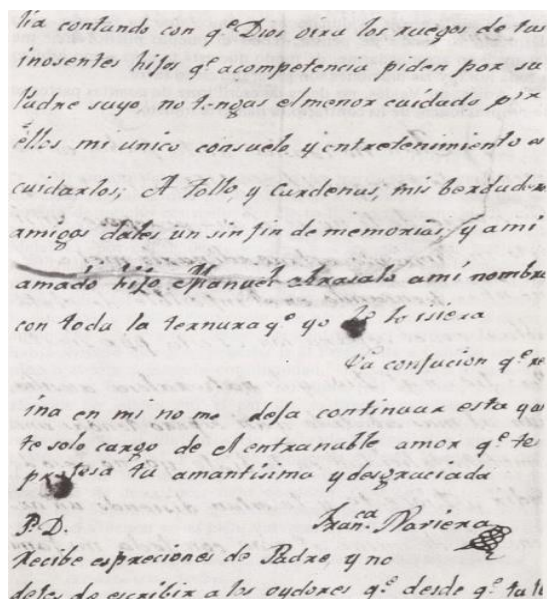 lia contando con q.e Dios oira los ruegos de tus
inosentes hijos q.e acompetencia piden por su
Padre suyo no tengas el menor cuidado por
ellos mi unico consuelo y entretenimiento es
cuidarlos; A Tollo, y Cardenas, mis berdaderos
amigos dales un sin fin de memorias, y ami
amado hijo Manuel abrasalo ami nombre
con toda la ternura q.e yo lo isiera
La confucion q.e re
ina en mi no me deja continuar esta
te solo cargo de el entrañable amor q.e te
profesa tu amantisima y desgraciada
Fran.ca Nariera
P.D.
Recibe espreciones de Padre, y no
dejes de escribir a los oydores q.e desde q.e tu